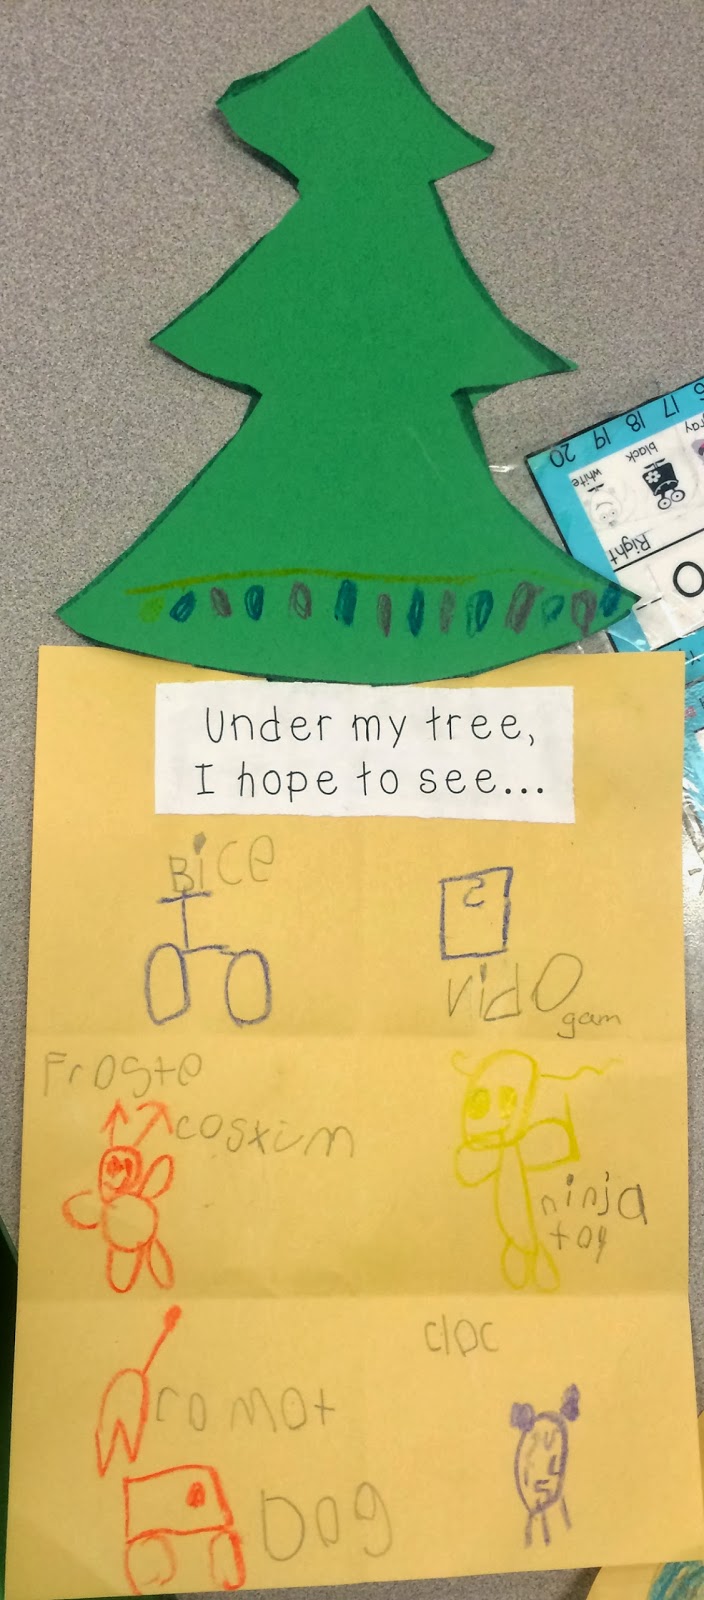 16 17 18 19 20
gray
black
white
Right
Under my tree,
I hope to see...
Bice
vido
gam
Froste
cosxim
ninja
toy
cloc
romot
Dog